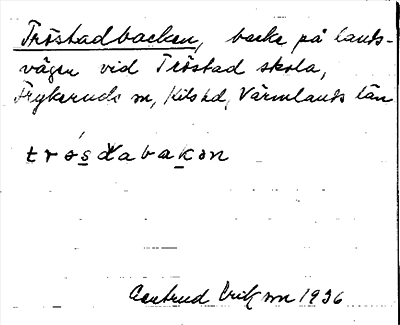 Tröstadbacken, backe på lands-
vägen vid Tröstad skola,
Frykeruds sn, Kils hd, Värmlands län
trósdabakən
Gertrud Eriksson 1936